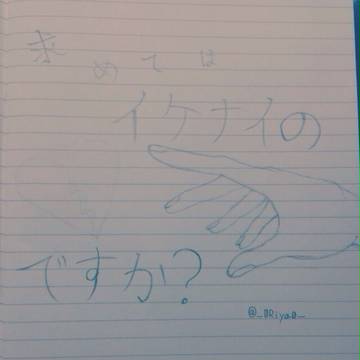 求めては
イケナイの
ですか?
@_ORiyaO_